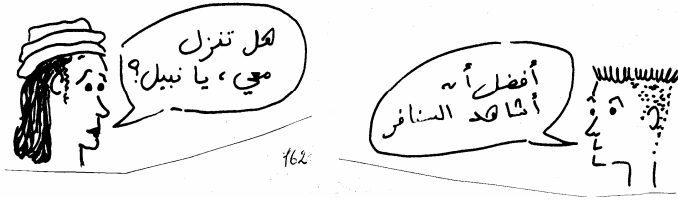 هل تنزل
معي، يا نبيل؟
أفضل أن
أشاهد السنافر
162